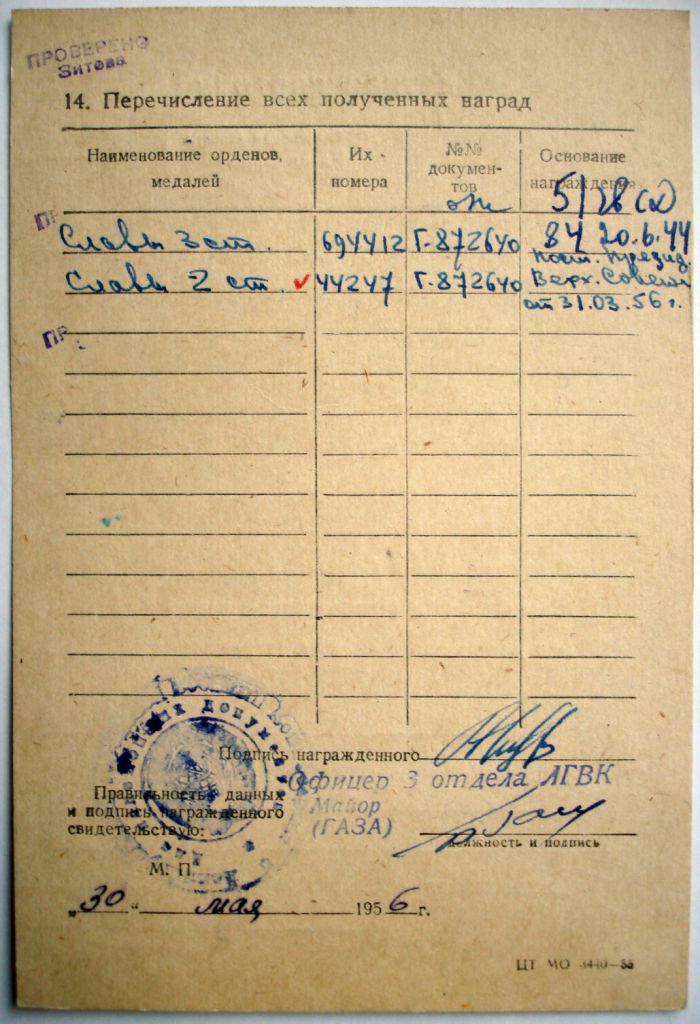 ПРОВЕРЕНО
Зитова
14. Перечисление всех полученных наград
Наименование орденов, медалей
Их номера
№№ документов
Основание награждения
5/28 сд
ПР
Славы 3 ст. 694412 Г-872640 84 20.6.44
Пост. Презид.
Славы 2 ст. 44247 Г-872640 Верх. Совета
от 31.03.56 г.
ПР
Подпись награжденного
Офицер 3 отдела ЛГВК
Правильность данных
Майор
и подпись награжденного
(ГАЗА)
свидетельствую:
должность и подпись
М. П.
„30“ мая 1956 г.
ЦТ МО 3440—55